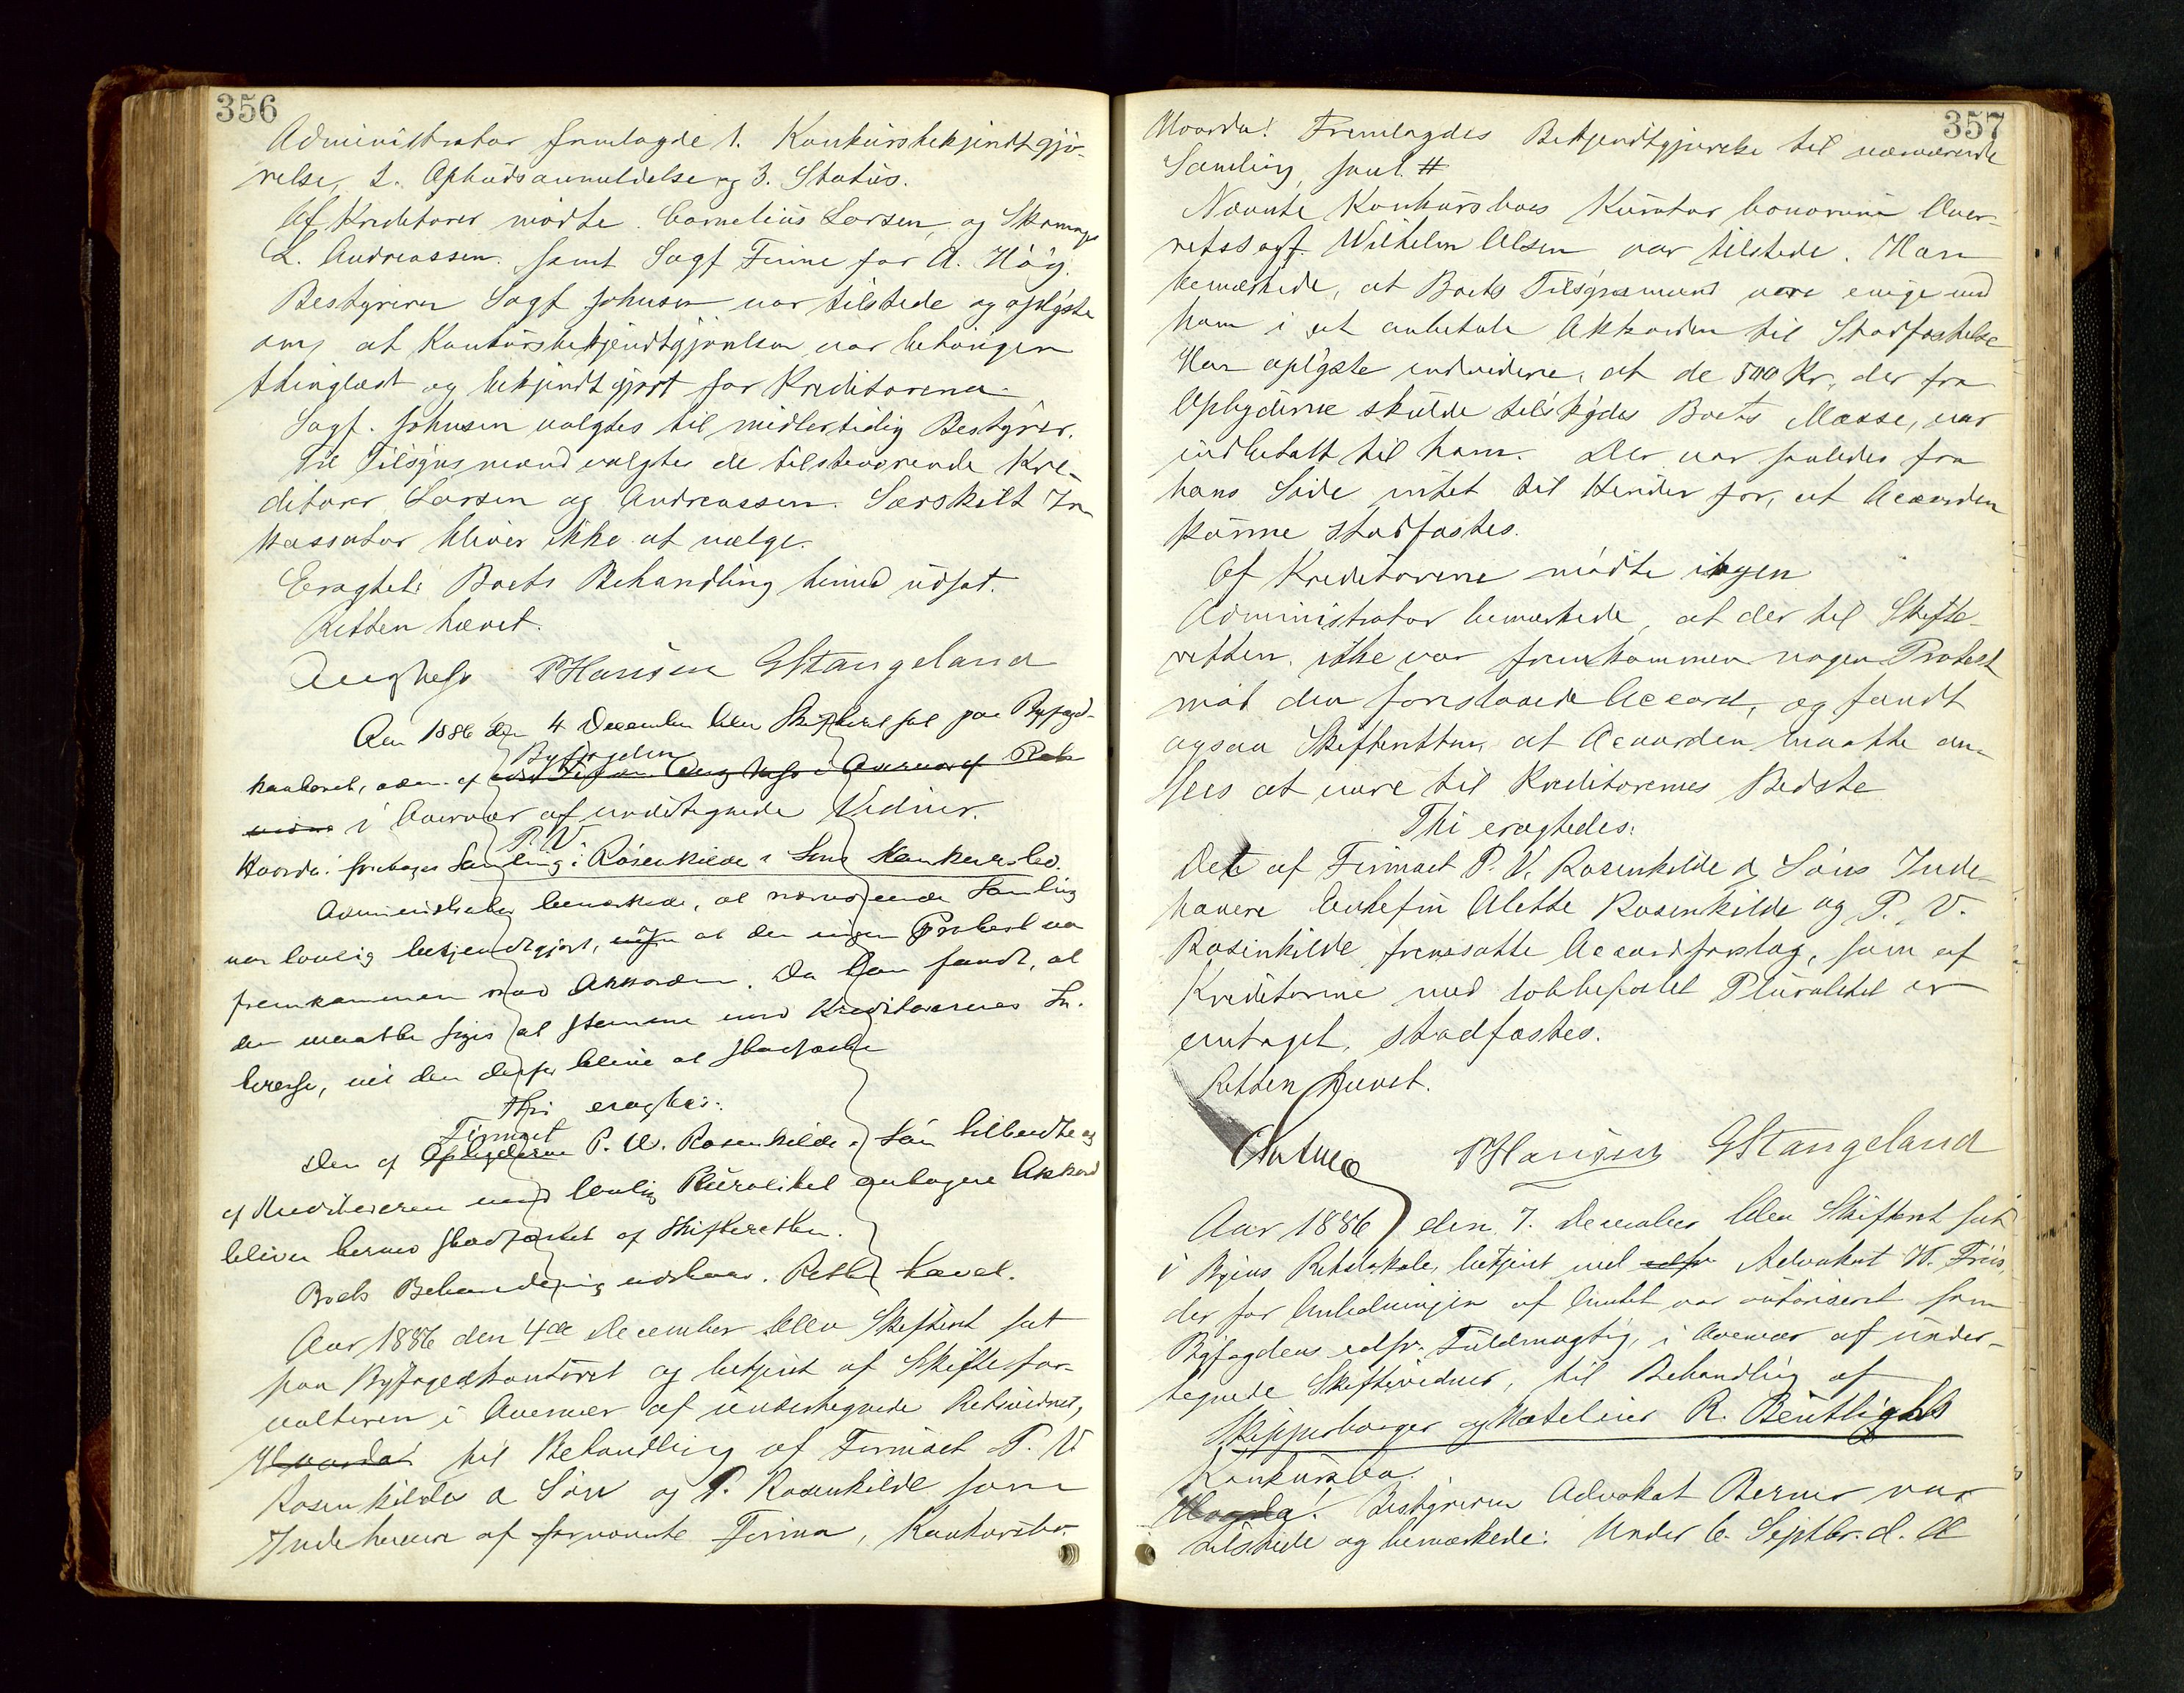 356
Administrator fremlagde 1. Konkursbekjendtgjø-
relse, 2. Opbudsanmeldelse og 3. Status.
Af Kreditorer mødte Cornelius Larsen, og Skomager
L. Andreassen. samt Sagf Finne for A. Høg.
Bestyreren Sagf Johnsen var tilstede og oplyste
om, at Konkursbekjendtgjørelsen var behørigen
thinglæst og bekjendtgjort for Kreditorerne.
Sagf. Johnsen valgtes til midlertidig Bestyrer.
Til Tilsynsmænd valgtes de tilstedeværende Kre-
ditorer Larsen og Andreassen. Særskilt In-
kassator bliver ikke at vælge.
Eragtet: Boets Behandling hermed udsat.
Retten hævet.
PHansen GStangeland
Aar 1886 den 4 December blev Skifteret sat paa Byfogd-
Byfogden
kontoret, adm. af
i Overvær af undertegnede Vidner.
P. V
Hvorda: foretoges Samling i Rosenkilde & Søns Konkursbo.
Administrator bemærkede, at nærværende Samling
var lovlig bekjendtgjort, at der ingen Protest var
fremkommen mod Akkorden. Da han fandt, at
den maatte siges at stemme med Kreditorernes In-
teresse, vil den derfor blive at stadfæste
Thi eragtes:
Firmaet
Den af Opbyderne P. W. Rosenkilde & Søn tilbudte og
af Kreditorerne med lovlig Pluralitet antagne Akkord
bliver herved stadfæstet af Skifteretten.
Boets Behandling udsat. Retten hævet.
Aar 1886 den 4de December blev Skifteret sat
paa Byfogedkontoret og betjent af Skiftefor-
valteren i Overvær af undertegnede Retsvidner,
Hvorda! til Behandling af Firmaet P. V
Rosenkilde & Søn og P. Rosenkilde som
Indehaver af fornævnte Firma, Konkursbo.
357
Hvorda! Fremlagdes Bekjendtgjørelse til nærværende
Samling, saal. #
Nævnte Konkursboes Kurator bonorum Over-
retssagf. Wilhelm Olsen var tilstede. Han
bemærkede, at Boets Tilsynsmænd vare enige med
ham i at anbefale Akkorden til Stadfæstelse
Han oplyste endvidere, at de 500 Kr, der fra
Opbyderne skulde tilskydes Boets Masse, var
indbetalt til ham. Der var saaledes fra
hans Side intet til Hinder for, at Accorden
kunne stadfæstes.
Af Kreditorerne mødte ingen
Administrator bemærkede, at der til Skifte-
retten ikke var fremkommen nogen Protest
mod den foreslaaede Accord, og fandt
ogsaa Skifteretten, at Accorden maatte an-
sees at være til Kreditorernes Bedste
Thi eragtedes:
Det af Firmaet P. V. Rosenkilde & Søns Inde-
havere Enkefru Alette Rosenkilde og P. V.
Rosenkilde fremsatte Accordforslag, som af
Kreditorerne med lovbefalet Pluralitet er
antaget, stadfæstes.
Retten hævet.
PHansen GStangeland
Aar 1886 den 7. December blev Skifteret sat
i Byens Retslokale, betjent ved Advokat W. Friis,
der for Anledningen af Amtet var autoriseret som
Byfogdens edsv. Fuldmægtig, i Overvær af under-
tegnede Skiftevidner, til Behandling af
Skipperborger og Høteleier R. Bentligths
Konkursbo.
Hvorda! Bestyreren Advokat Berner var
tilstede og bemærkede: Under 6. Septbr. d. A